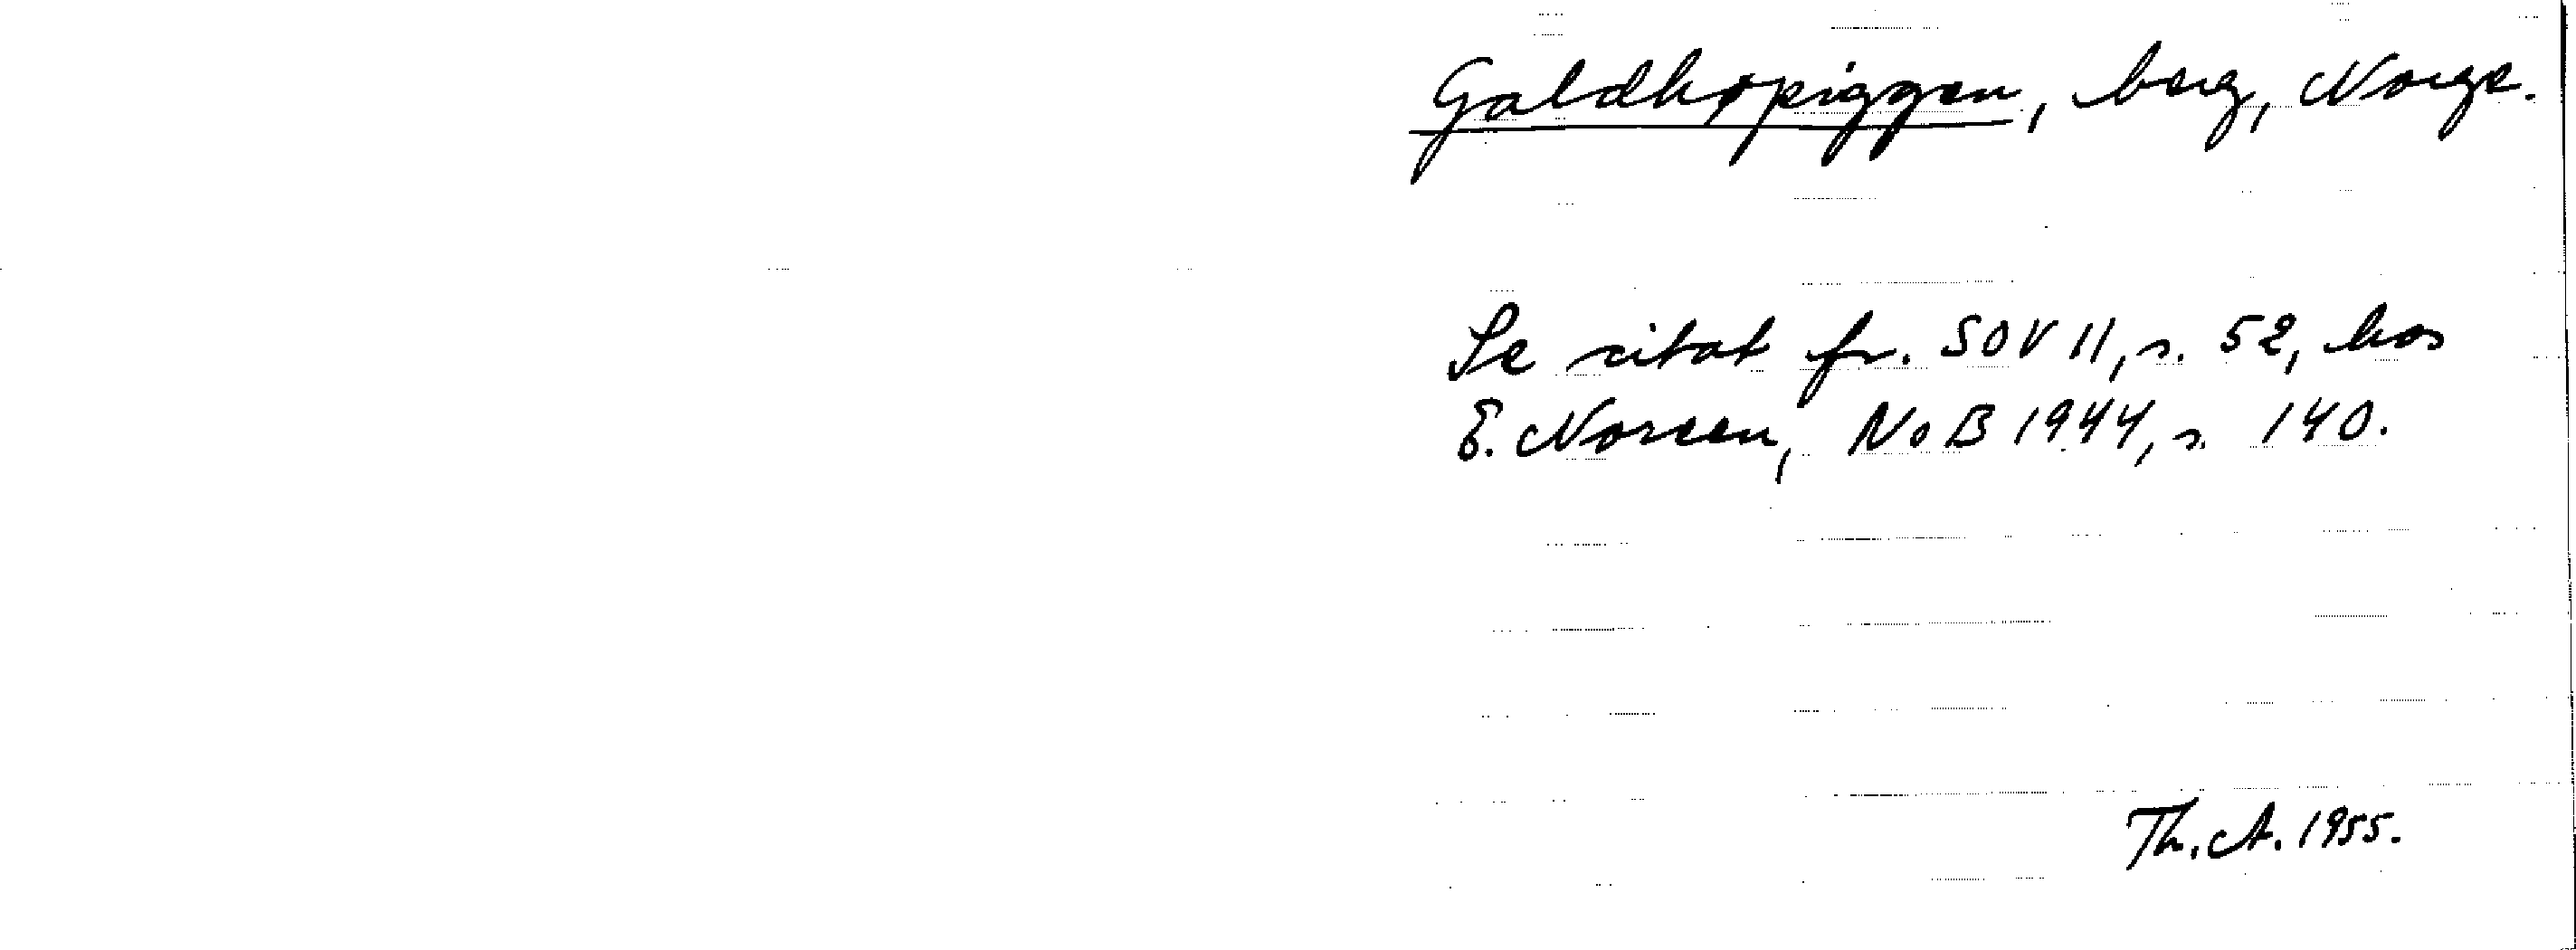 Galdhøpiggen, berg, Norge.
Se citat fr. SOV 11, s. 52, hos
E. Noreen, NoB 1944, s. 140.
Th. A. 1955.